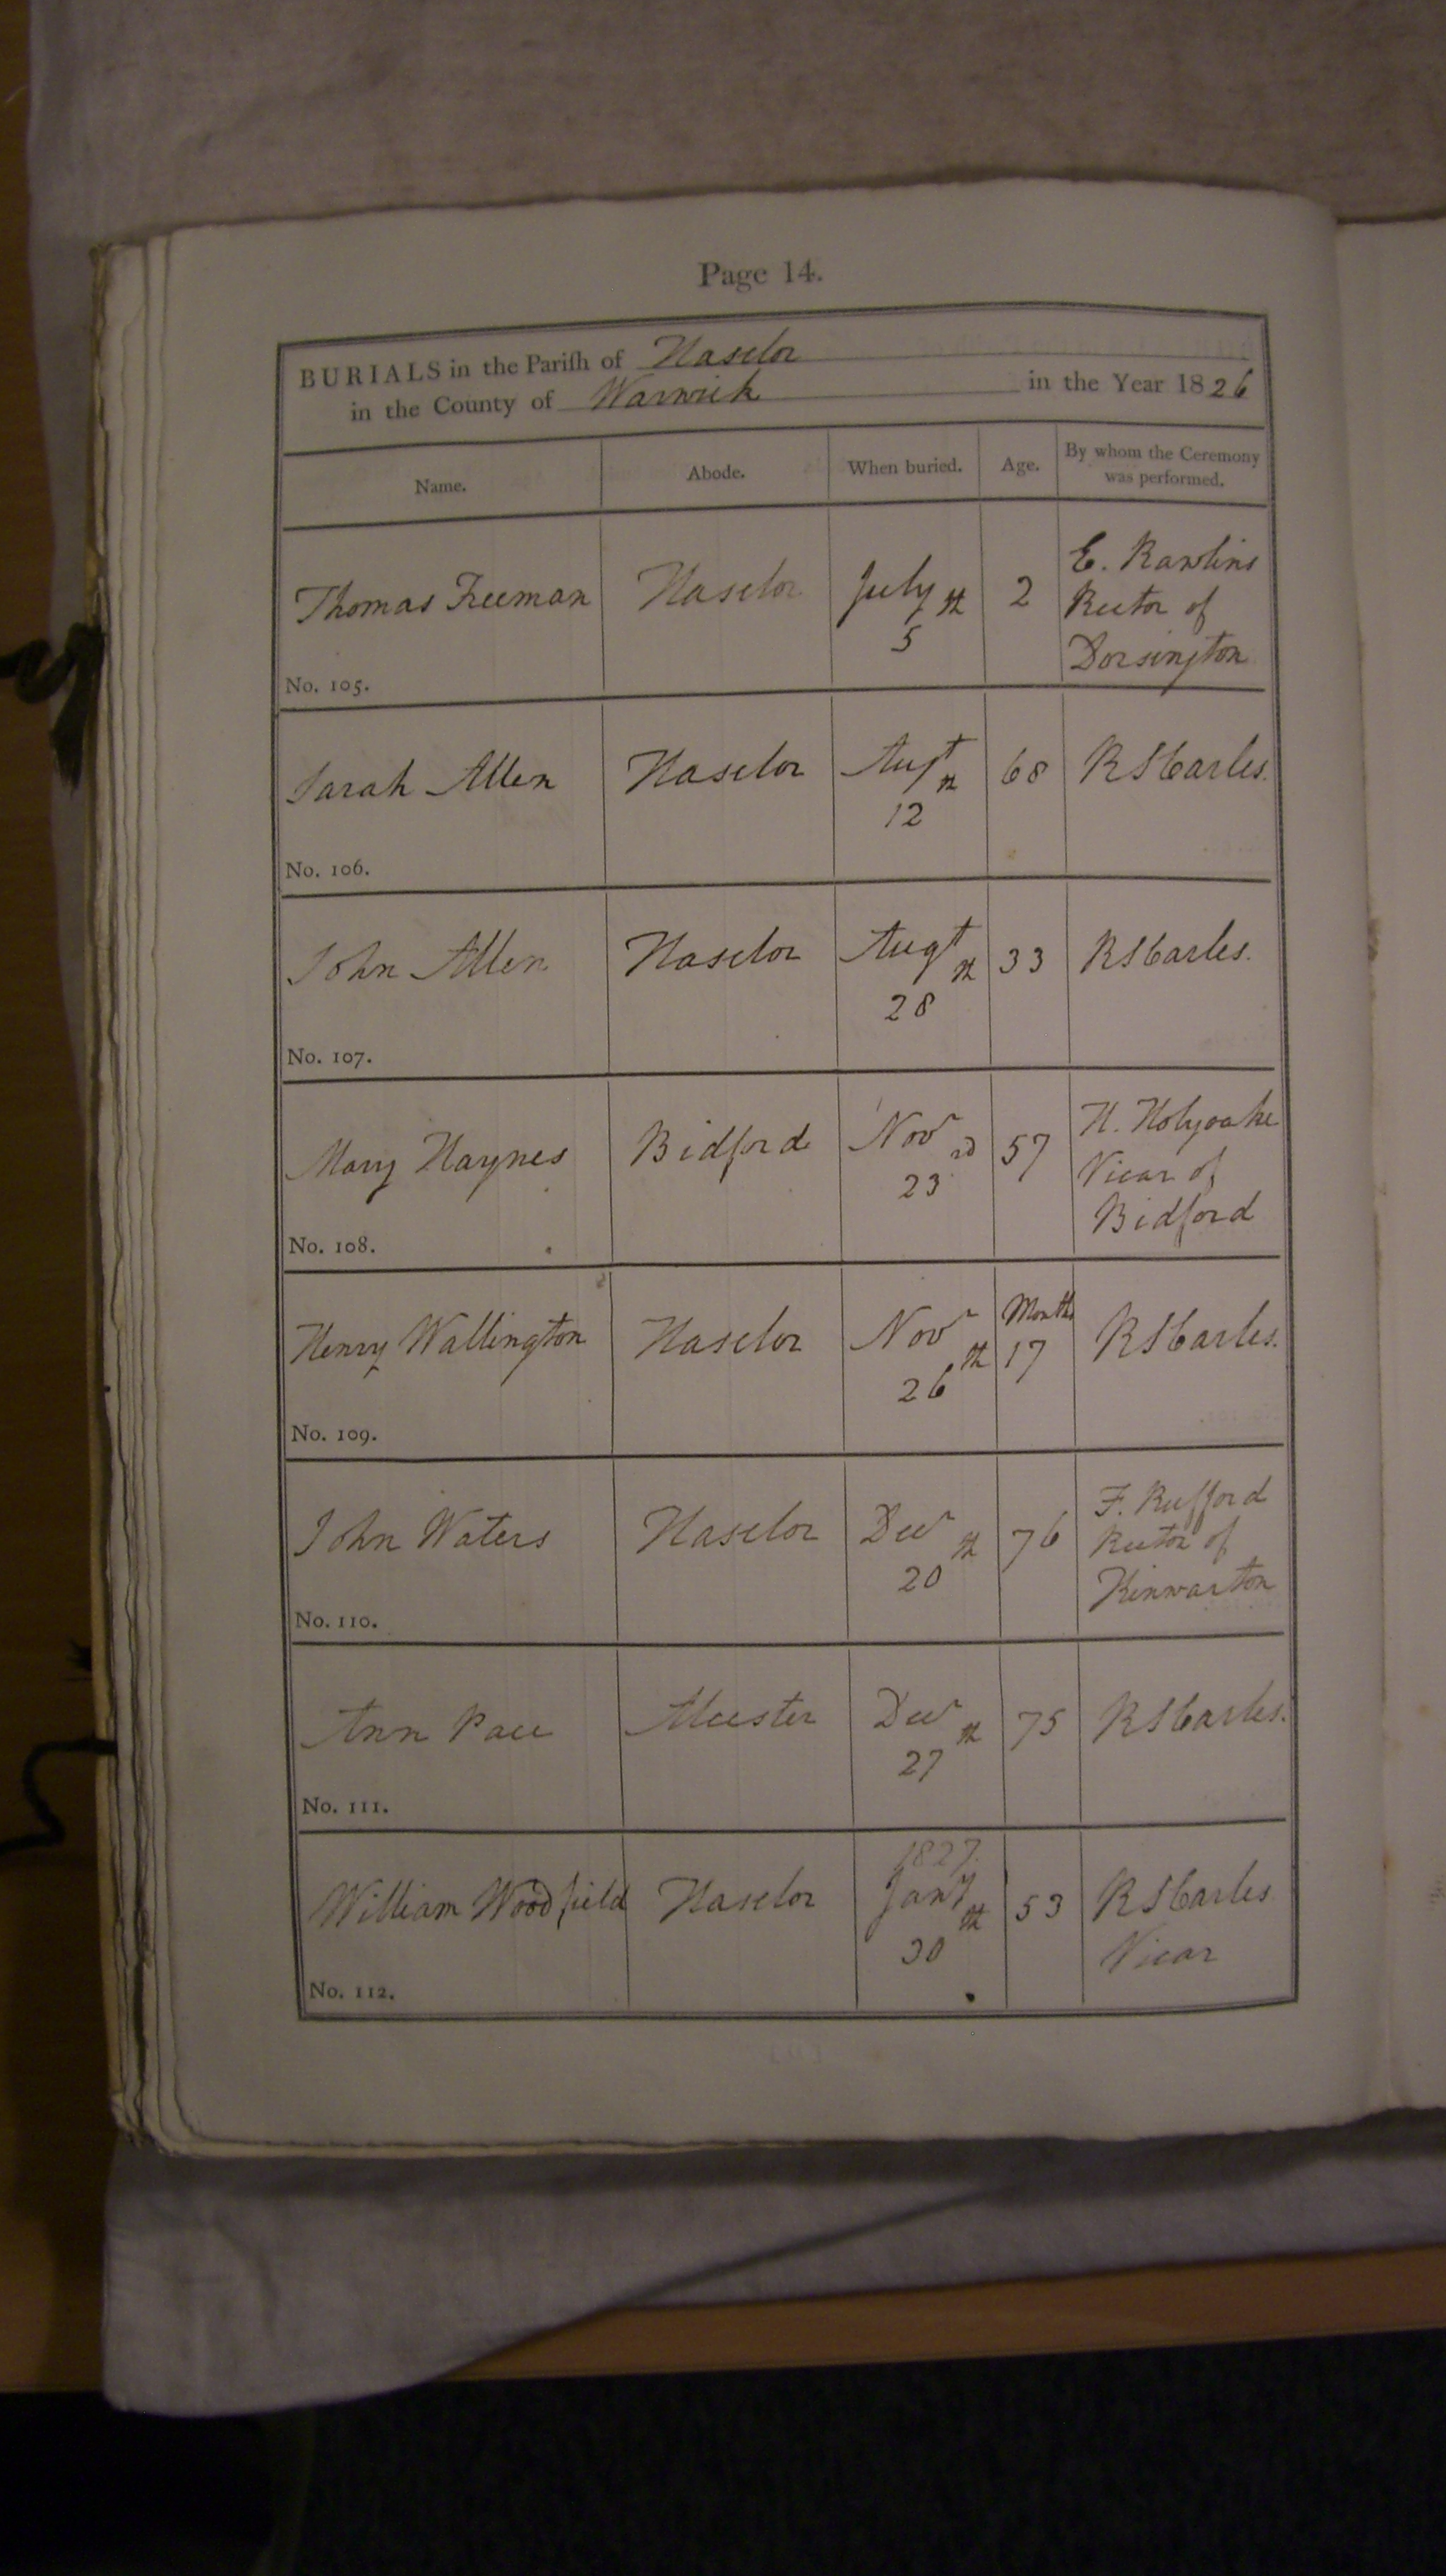 Page 14.
BURIALS in the Pariſh of Haselor
in the County of Warwick in the Year 1826
Name. Abode. When buried. Age. By whom the Ceremony was performed.
Thomas Freeman Haselor July 5th 2 E. Rawlins
Rector of
Dorsington
No. 105.
Sarah Allen Haselor Augt 12th 68 RSCarles.
No. 106.
John Allen Haselor Augt 28th 33 RSCarles.
No. 107.
Mary Haynes Bidford Novr 23rd 57 H. Holyoake
Vicar of
Bidford
No. 108.
Henry Wallington Haselor Novr 26th Months 17 RSCarles.
No. 109.
John Waters Haselor Decr 20th 76 F. Rufford
Rector of
Kinwarton
No. 110.
Ann Pace Alcester Decr 27th 75 RSCarles.
No. 111.
William Woodfield Haselor 1827. Jany 30th 53 RSCarles
Vicar
No. 112.